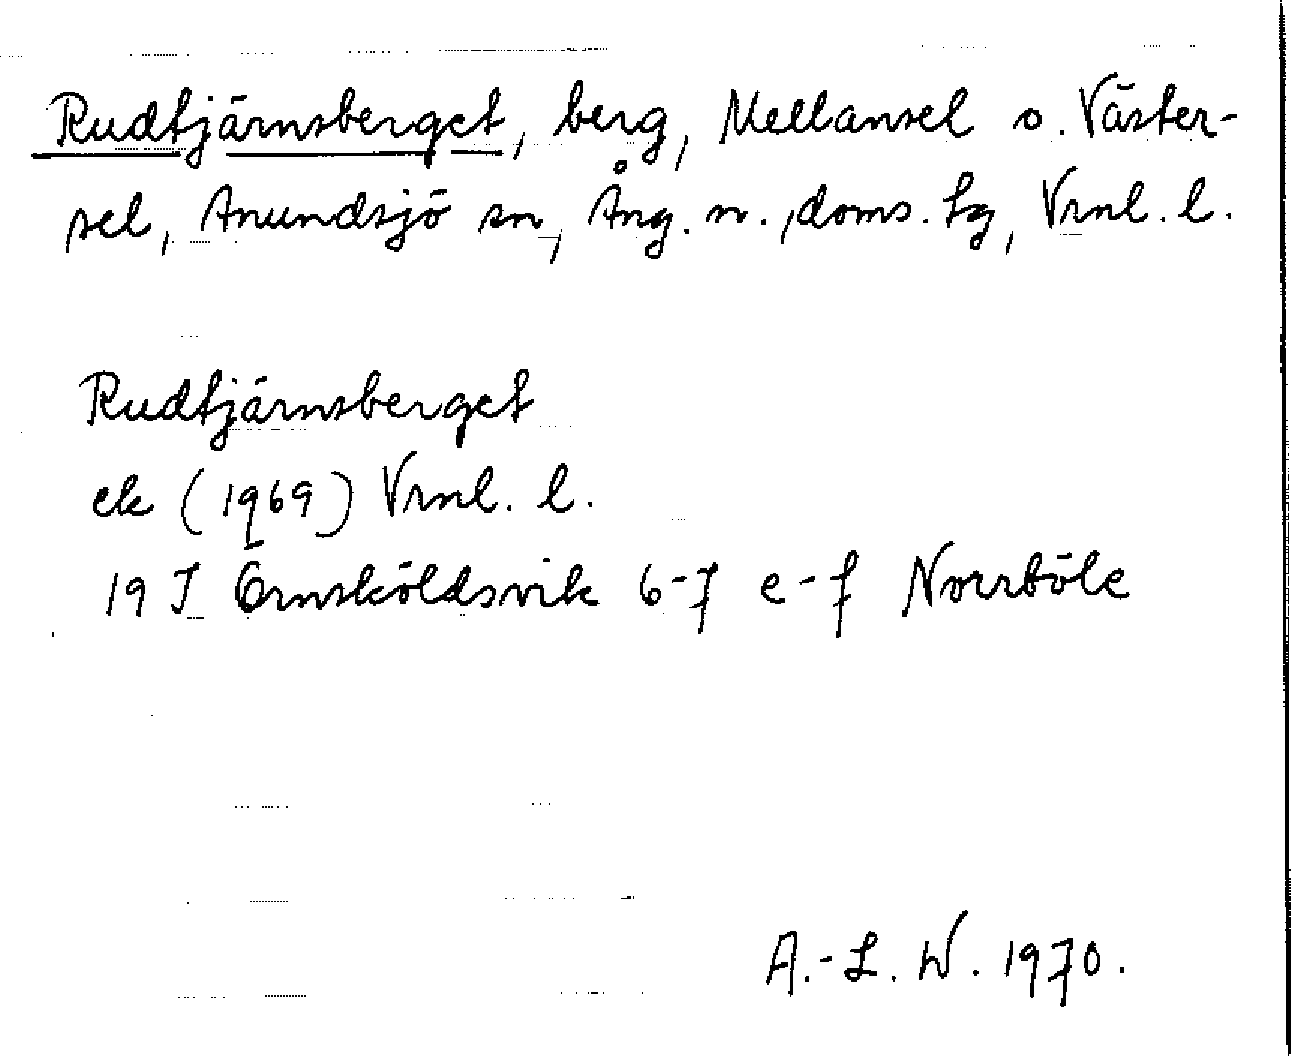 Rudtjärnsberget, berg, Mellansel o. Väster-
sel, Anundsjö sn, Ång. n., doms. hg, Vrnl. l.
Rudtjärnsberget
ek (1969) Vrnl. l.
19 J Örnsköldsvik 6-7 e-f Norrböle
A.-L. W. 1970.